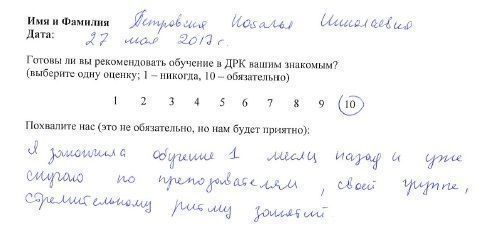 Имя и Фамилия Петровская Наталья Николаевна
Дата: 27 мая 2017 г.
Готовы ли вы рекомендовать обучение в ДРК вашим знакомым?
(выберите одну оценку; 1 – никогда, 10 – обязательно)
1 2 3 4 5 6 7 8 9 10
Похвалите нас (это не обязательно, но нам будет приятно):
Я закончила обучение 1 месяц назад и уже
скучаю по преподавателям, своей группе,
стремительному ритму занятий.